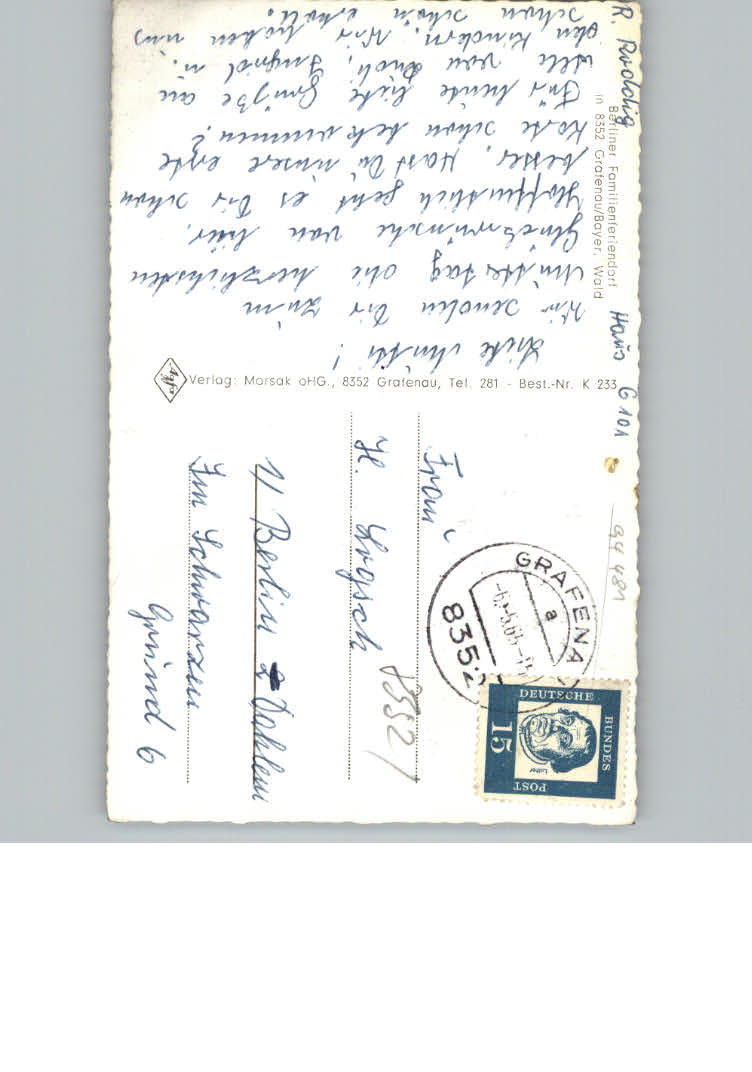 R. Raddig Haus G 101
Berliner Familienferiendorf
in 8352 Grafenau/Bayer. Wald
Liebe Mutti!
Wir senden Dir zum
Muttertag die herzlichsten
Glückwünsche von hier.
Hoffentlich geht es Dir schon
besser. Hast Du unsere erste
Karte schon bekommen?
Für heute liebe Grüße an
alle von Rudi, Ingrid u.
den Kindern. Wir haben uns
schon schön erholt.
Agfa
Verlag: Morsak oHG., 8352 Grafenau, Tel. 281 - Best.-Nr. K 233
94 481
Frau
H. Logsch
1/ Berlin Dahlem
Im Schwarzen
Grund 6
8352/
GRAFENAU
a
8352
DEUTSCHE
BUNDES
POST
15
Luther